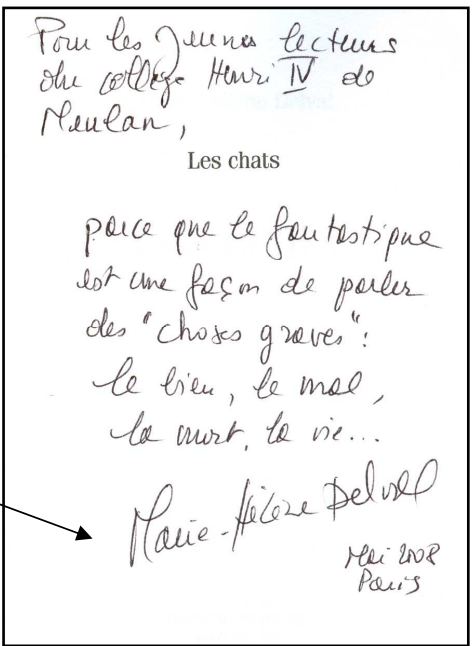 Pour les Jeunes lecteurs
du collège Henri IV de
Meulan,
Les chats
parce que le fantastique
est une façon de parler
des "choses graves":
le bien, le mal,
la mort, la vie...
Marie-Hélène Delval
Mai 2008
Paris